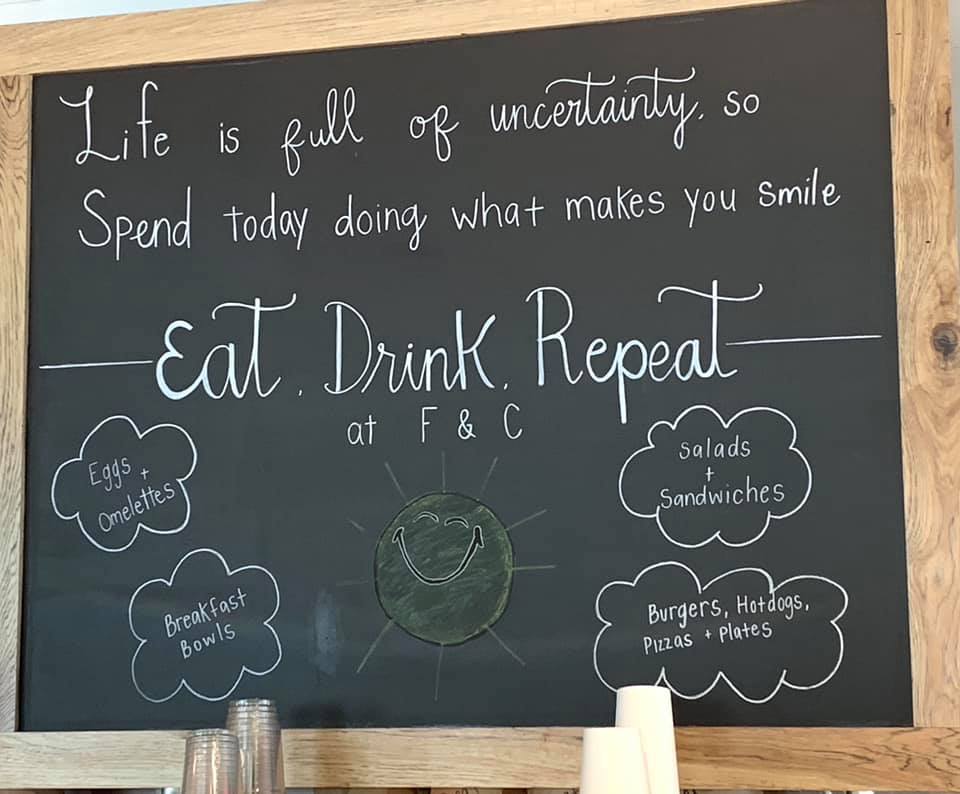 Life is full of uncertainty, so
Spend today doing what makes you smile
Eat, Drink, Repeat
at F & C
Eggs +
Omelettes
Breakfast
Bowls
Salads
+
Sandwiches
Burgers, Hotdogs,
Pizzas + Plates